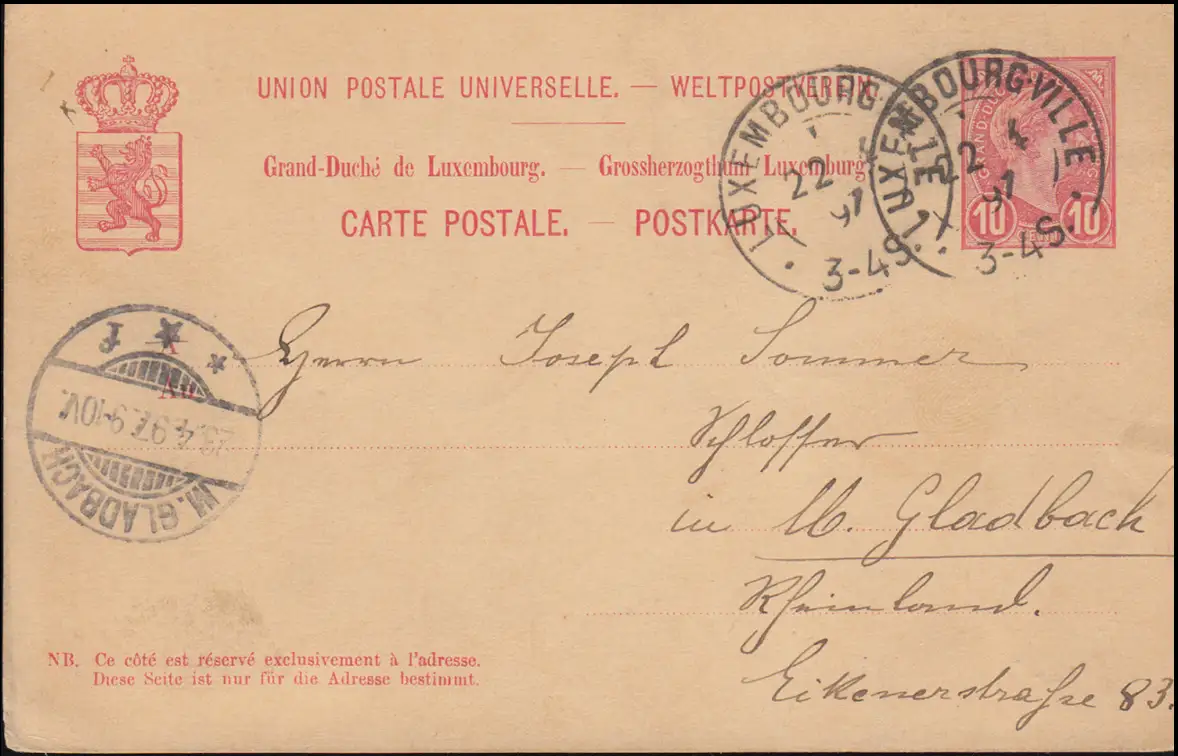 UNION POSTALE UNIVERSELLE. — WELTPOSTVEREIN.
Grand-Duché de Luxembourg. — Grossherzogthum Luxemburg.
CARTE POSTALE. — POSTKARTE.
LUXEMBOURG-VILLE
22 4 97
3-4 S.
LUXEMBOURG-VILLE
22 4 97
3-4 S.
GRAND-DUCHÉ
10 10
A
An
M. GLADBACH
23.4.97. 9-10V.
f
Herrn Joseph Sommer
Schlosser
in M. Gladbach
Rheinland.
Eikenerstraße 83.
NB. Ce côté est réservé exclusivement à l'adresse.
Diese Seite ist nur für die Adresse bestimmt.